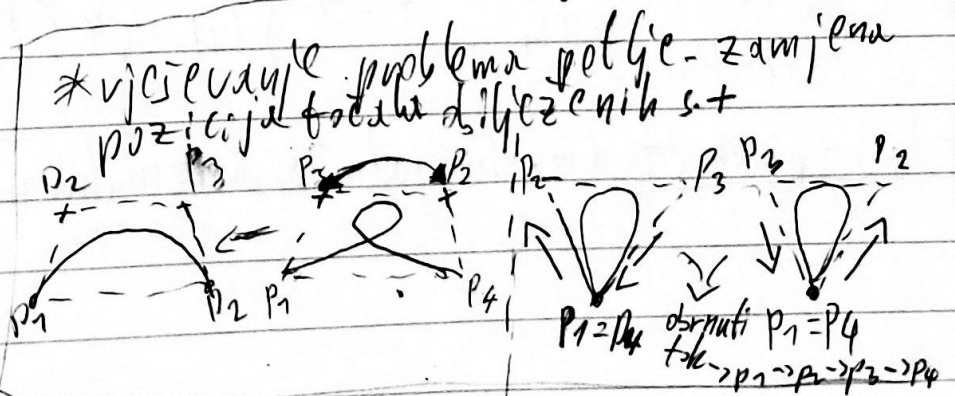 * vjesjevanje problema petlje - zamjena
pozicija točaka obilježenih s +
P2 P3 P3 P2 P2 P3 P3 P2
P1 P2 P1 P4 P1=P4 obrnuti P1=P4
tok -> P1 -> P2 -> P3 -> P4